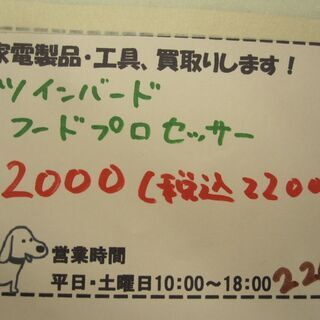 家電製品・工具、買取りします！
ツインバード
フードプロセッサー
2000（税込2200
営業時間
平日・土曜日10:00～18:00